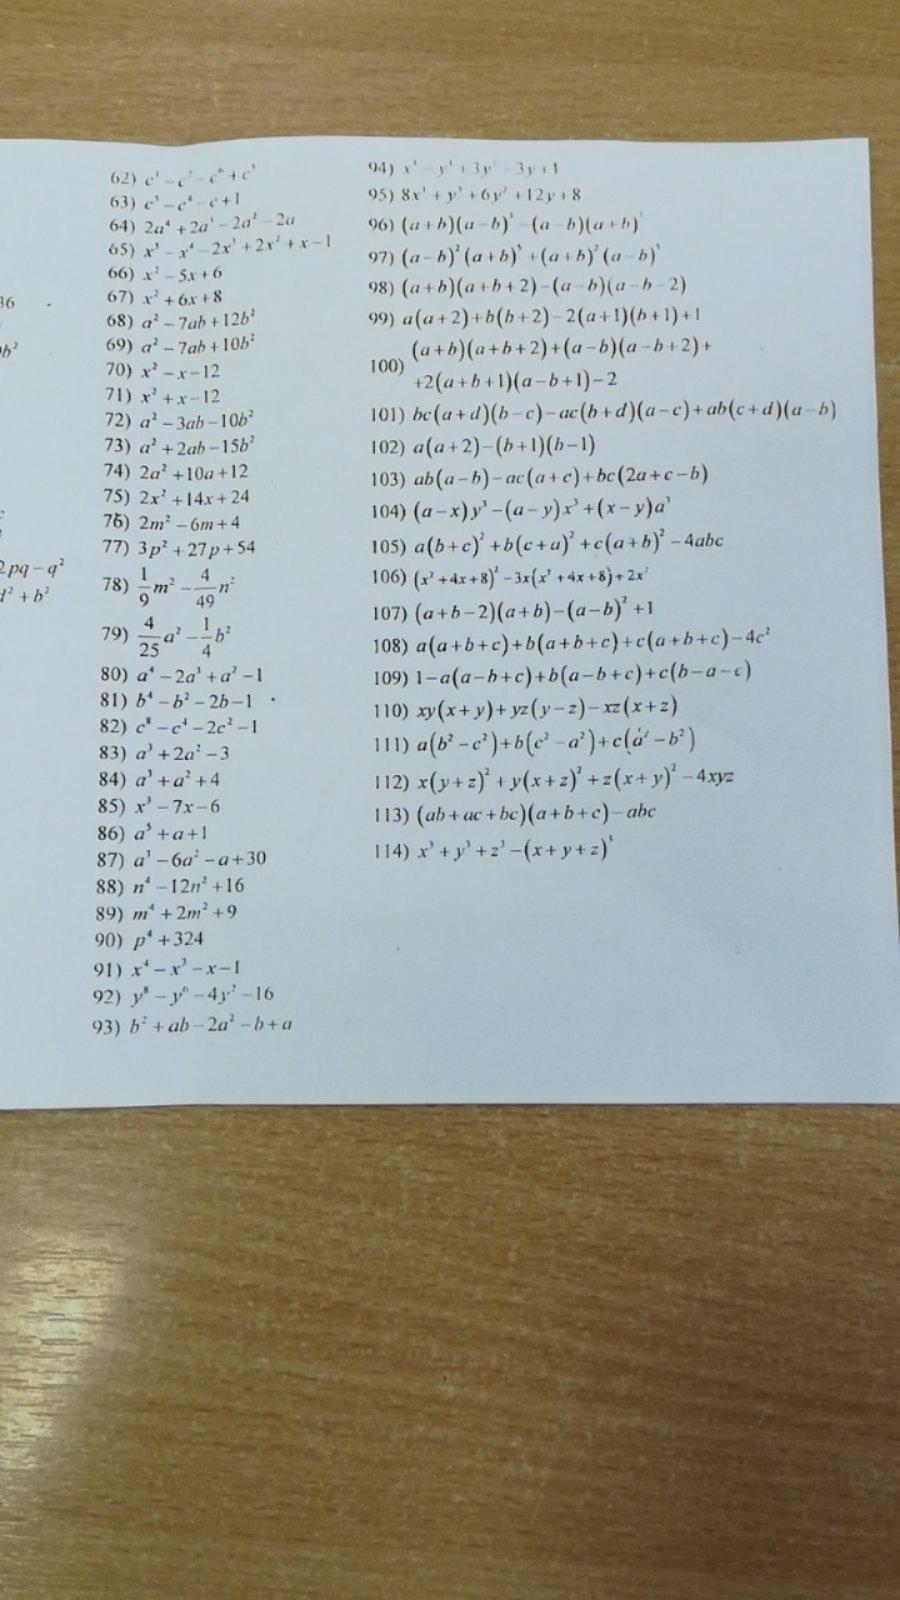 36
b²
2pq − q²
d² + b²
62)
63) c⁵ − c⁴ − c + 1
64) 2a⁴ + 2a³ − 2a² − 2a
65) x⁵ − x⁴ − 2x³ + 2x² + x − 1
66) x² − 5x + 6
67) x² + 6x + 8
68) a² − 7ab + 12b²
69) a² − 7ab + 10b²
70) x² − x − 12
71) x² + x − 12
72) a² − 3ab − 10b²
73) a² + 2ab − 15b²
74) 2a² + 10a + 12
75) 2x² + 14x + 24
76) 2m² − 6m + 4
77) 3p² + 27p + 54
78) 1/9 m² − 4/49 n²
79) 4/25 a² − 1/4 b²
80) a⁴ − 2a³ + a² − 1
81) b⁴ − b² − 2b − 1
82) c⁸ − c⁴ − 2c² − 1
83) a³ + 2a² − 3
84) a³ + a² + 4
85) x³ − 7x − 6
86) a⁵ + a + 1
87) a³ − 6a² − a + 30
88) n⁴ − 12n² + 16
89) m⁴ + 2m² + 9
90) p⁴ + 324
91) x⁴ − x³ − x − 1
92) y⁸ − y⁶ − 4y² − 16
93) b² + ab − 2a² − b + a
94) x³ − y³ + 3y² − 3y + 1
95) 8x³ + y³ + 6y² + 12y + 8
96) (a + b)(a − b)³ − (a − b)(a + b)³
97) (a − b)²(a + b)³ + (a + b)²(a − b)³
98) (a + b)(a + b + 2) − (a − b)(a − b − 2)
99) a(a + 2) + b(b + 2) − 2(a + 1)(b + 1) + 1
100) (a + b)(a + b + 2) + (a − b)(a − b + 2) +
+2(a + b + 1)(a − b + 1) − 2
101) bc(a + d)(b − c) − ac(b + d)(a − c) + ab(c + d)(a − b)
102) a(a + 2) − (b + 1)(b − 1)
103) ab(a − b) − ac(a + c) + bc(2a + c − b)
104) (a − x)y³ − (a − y)x³ + (x − y)a³
105) a(b + c)² + b(c + a)² + c(a + b)² − 4abc
106) (x² + 4x + 8)² − 3x(x² + 4x + 8) + 2x²
107) (a + b − 2)(a + b) − (a − b)² + 1
108) a(a + b + c) + b(a + b + c) + c(a + b + c) − 4c²
109) 1 − a(a − b + c) + b(a − b + c) + c(b − a − c)
110) xy(x + y) + yz(y − z) − xz(x + z)
111) a(b² − c²) + b(c² − a²) + c(a² − b²)
112) x(y + z)² + y(x + z)² + z(x + y)² − 4xyz
113) (ab + ac + bc)(a + b + c) − abc
114) x³ + y³ + z³ − (x + y + z)³